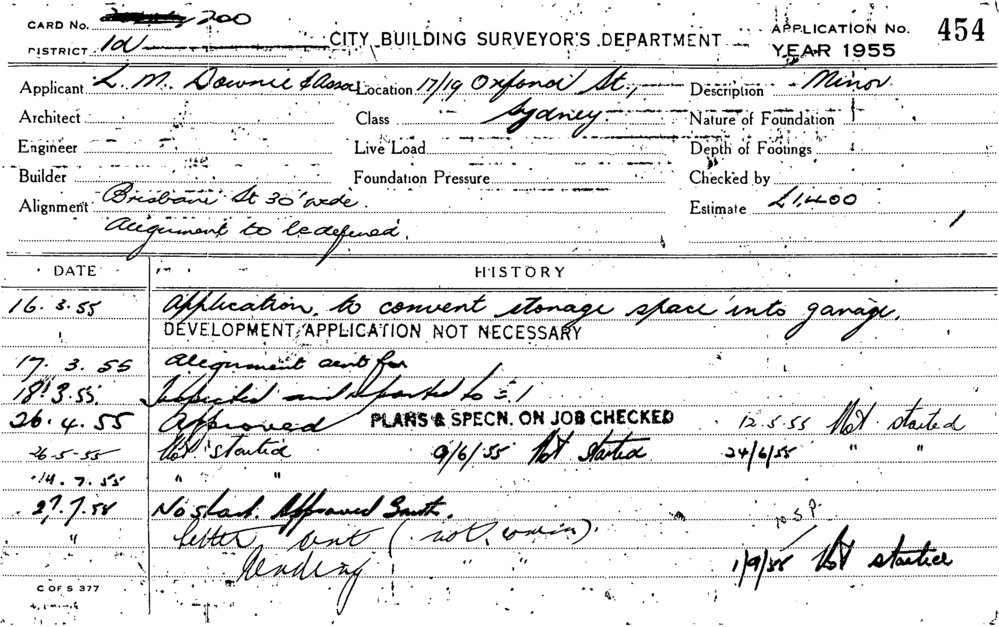 CARD No. 200
DISTRICT 1d CITY BUILDING SURVEYOR'S DEPARTMENT APPLICATION No. 454
YEAR 1955
Applicant L. M. Downie & Assoc Location 17/19 Oxford St., Description Minor
Architect Class Sydney Nature of Foundation
Engineer Live Load Depth of Footings
Builder Foundation Pressure Checked by
Alignment Brisbane St 30' wide. Estimate £1,400
Alignment to be defined. 1
DATE HISTORY
16. 3. 55 Application to convert storage space into garage.
DEVELOPMENT APPLICATION NOT NECESSARY
17. 3. 55 Alignment sent for
18. 3. 55. Inspected and reported to
26. 4. 55 Approved PLANS & SPECN. ON JOB CHECKED 12.5.55 Not started
26-5-55 Not started 9/6/55 Not started 24/6/55 " "
14. 7. 55 " "
27. 7. 55 No start. Approved
" letter sent (not
1/9/55 Not started
C OF S 377